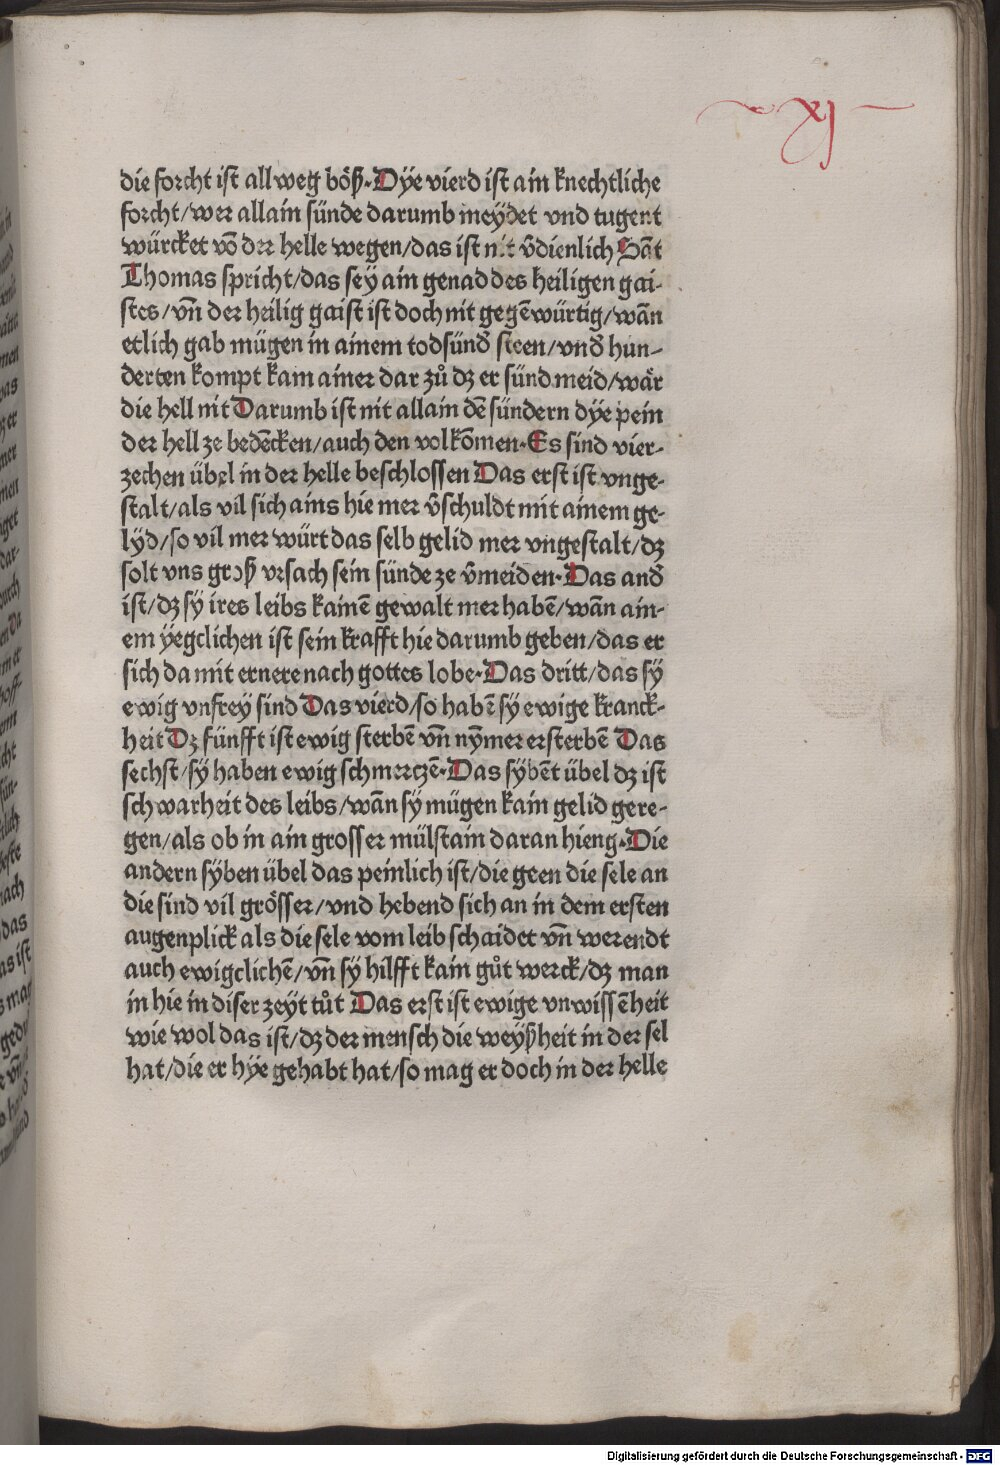 xj
die forcht ist allweg böß·Dye vierd ist ain knechtliche
forcht/wer allain sünde darumb meydet vnd tugent
würcket võ der helle wegen/das ist nit v̄dienlich Sãt
Thomas spricht/das sey ain genad des heiligen gai-
stes/vñ der heilig gaist ist doch nit gegẽwürtig/wãn
etlich gab mügen in ainem todsünd̄ steen/vnd̄ hun-
derten kompt kam ainer dar zů dz er sünd meid/wär
die hell nit Darumb ist nit allain dẽ sündern dye pein
der hell ze bedẽcken/auch den volkõmen·Es sind vier-
zechen übel in der helle beschlossen Das erst ist vnge-
stalt/als vil sich ains hie mer v̄schuldt mit ainem ge-
lyd/so vil mer würt das selb gelid mer vngestalt/dz
solt vns groß vrsach sein sünde ze v̄meiden·Das and̄
ist/dz sy ires leibs kainẽ gewalt mer habẽ/wãn ain-
em yegclichen ist sein krafft hie darumb geben/das er
sich da mit ernere nach gottes lobe·Das dritt/das sy
ewig vnfrey sind Das vierd/so habẽ sy ewige kranck-
heit Dz fünfft ist ewig sterbẽ vñ nym̃er ersterbẽ Das
sechst/sy haben ewig schmerczẽ·Das sybẽt übel dz ist
schwarheit des leibs/wãn sy mügen kain gelid gere-
gen/als ob in ain grosser mülstain daran hieng·Die
andern syben übel das peinlich ist/die geen die sele an
die sind vil grösser/vnd hebend sich an in dem ersten
augenplick als die sele vom leib schaidet vñ werendt
auch ewigclichẽ/vñ sy hilfft kain gůt werck/dz man
in hie in diser zeyt tůt Das erst ist ewige vnwissẽheit
wie wol das ist/dz der mensch die weyßheit in der sel
hat/die er hye gehabt hat/so mag er doch in der helle
Digitalisierung gefördert durch die Deutsche Forschungsgemeinschaft - DFG